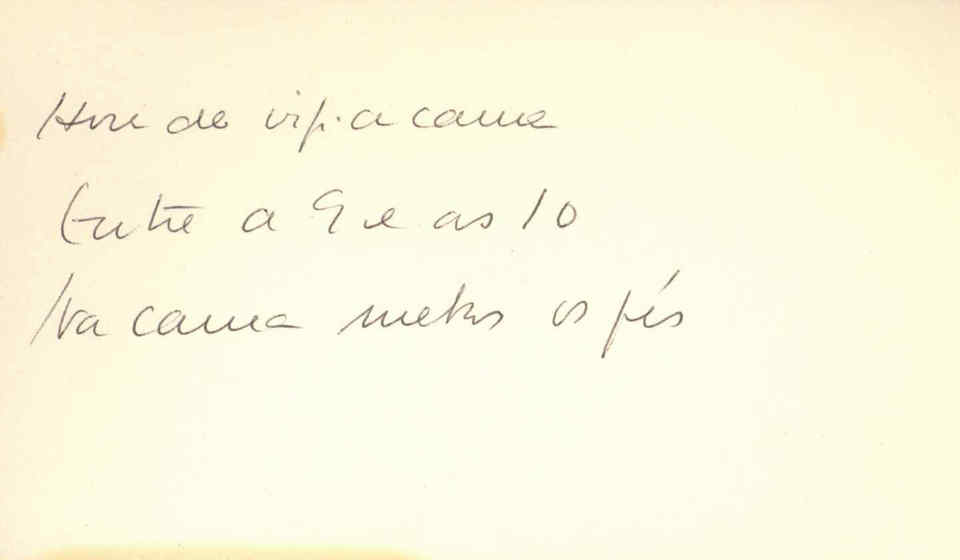 Hora de ir p.a cama
Entre a 9 e as 10
Na cama metes os pés